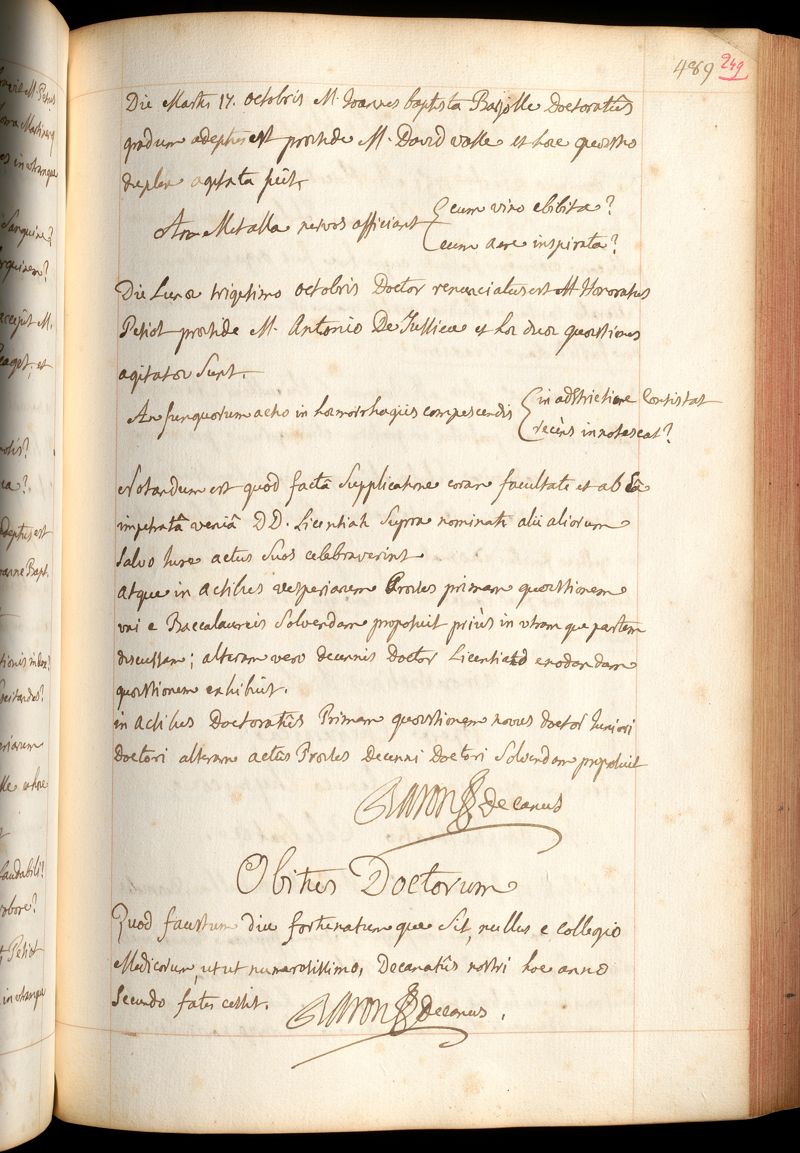 489 249
Die Martis 17. octobris M. Joannes baptista Basjolle Doctoratûs
gradum adeptus est præside M. David Vasse et hæc quæstio
duplex agitata fuit.
An Metalla nervos afficiant { cum vino ebibita?
cum aere inspirata?
Die Lunæ trigesimo octobris Doctor renunciatus est M Honoratus
Petiot præside M. Antonio De Jussieu et hæ duæ quæstiones
agitatæ sunt.
An fungorum actio in hæmorrhagiis compescendis { in adstrictione Consistat
recèns innotescat?
Notandum est quod factâ Supplicatione coram facultate et ab Eâ
impetratâ veniâ DD. Licentiati Supra nominati alii aliorum
Salvo Jure actus Suos celebraverint
atque in actibus vesperiarum Præses primam quæstionem
uni e Baccalaureis Solvendam proposuit priùs in utramque partem
discussam; alteram vero decennis Doctor Licentiato enodandam
quæstionem exhibuit.
in actibus Doctoratûs Primam quæstionem novus doctor Juniori
Doctori alteram actûs Præses Decenni Doctori Solvendam proposuit
Baron decanus
Obitus Doctorum
Quod faustum diu fortunatumque Sit, nullus e collegio
Medicorum, ut ut numerosissimo, Decanatûs nostri hoc anno
Secundo fatis cessit. Baron decanus.